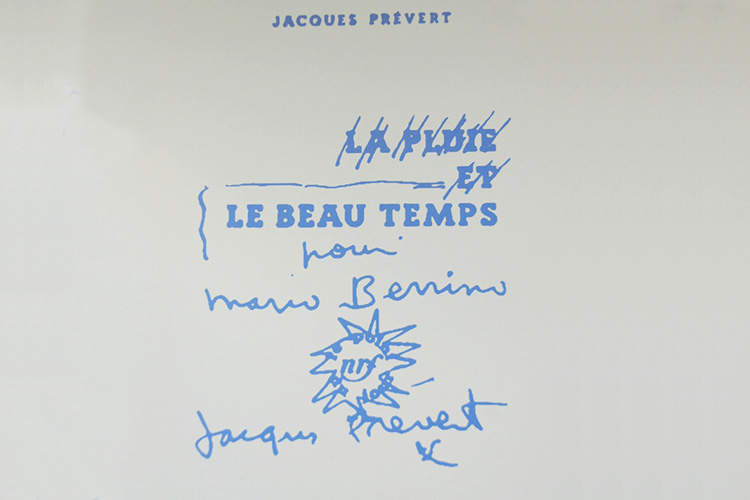 JACQUES PRÉVERT
LA PLUIE
ET
LE BEAU TEMPS
pour
Mario Berrino
nrf
Jacques Prévert